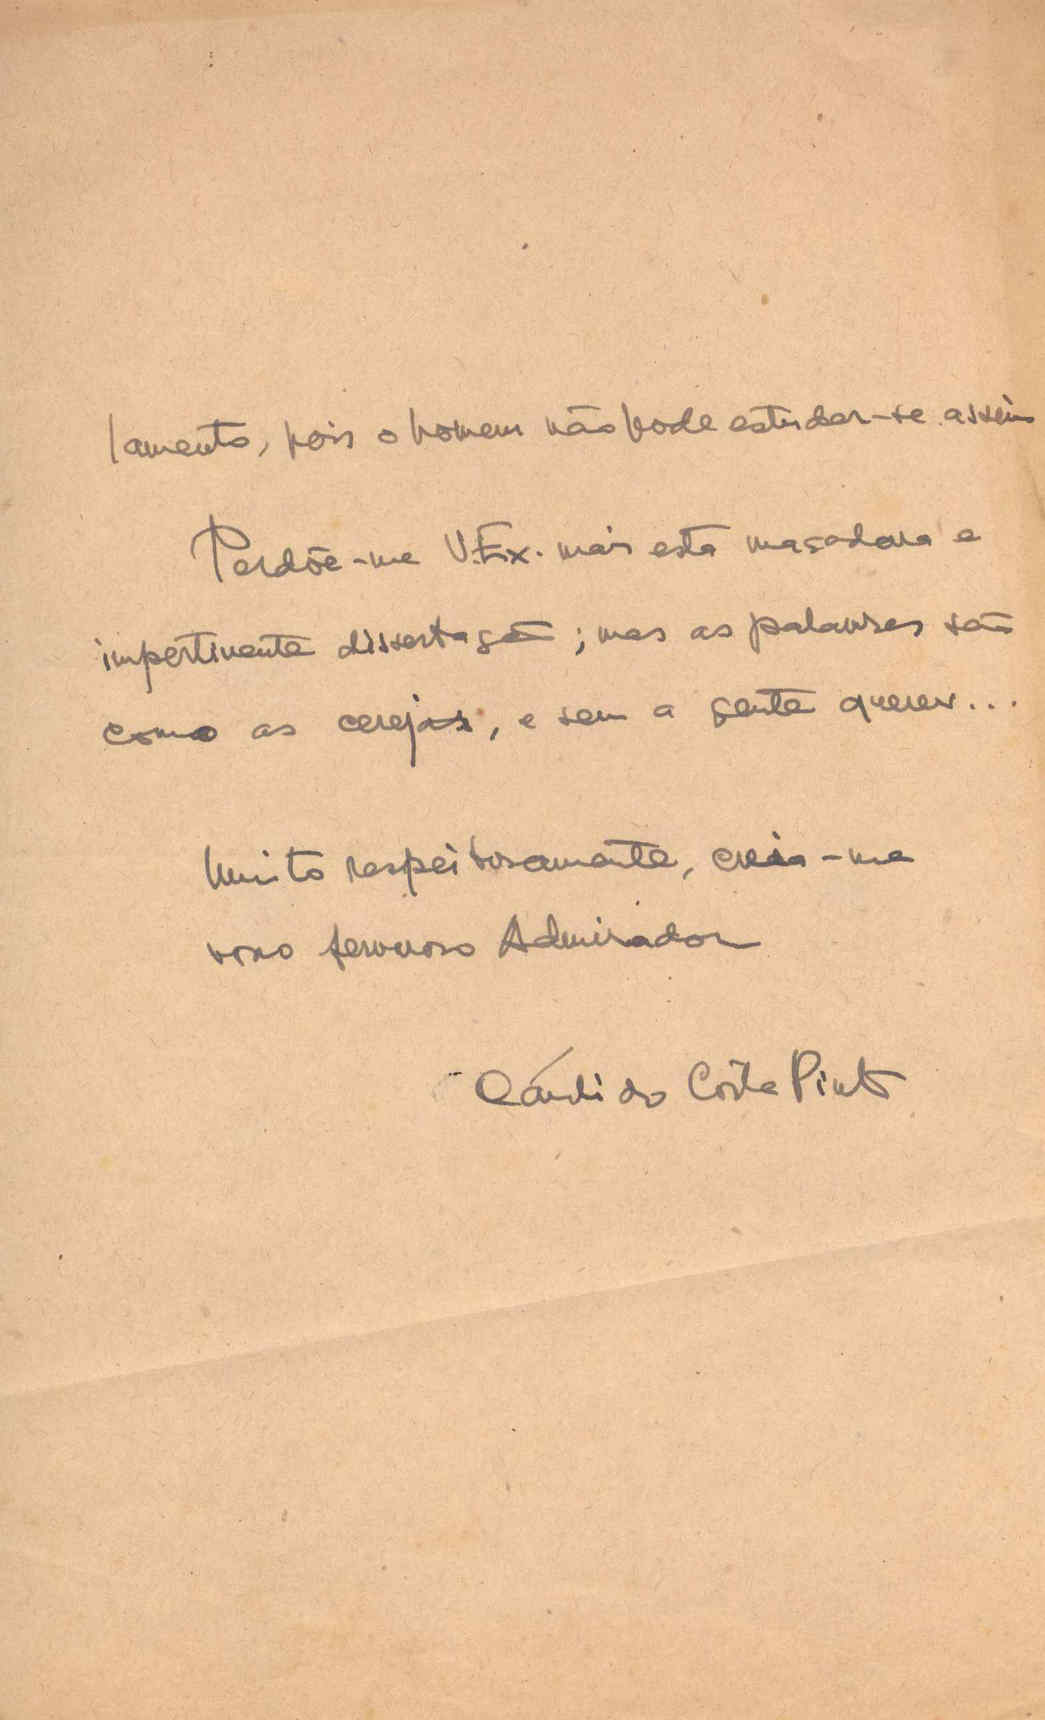 lamento, pois o homem não pode estudar-se assim
Perdõe-me V.Ex. mais esta maçadora e
impertinente dissertação; mas as palavras são
como as cerejas, e sem a gente querer...
Muito respeitosamente, creia-me
vosso fervoroso Admirador
Cándido Costa Pinto